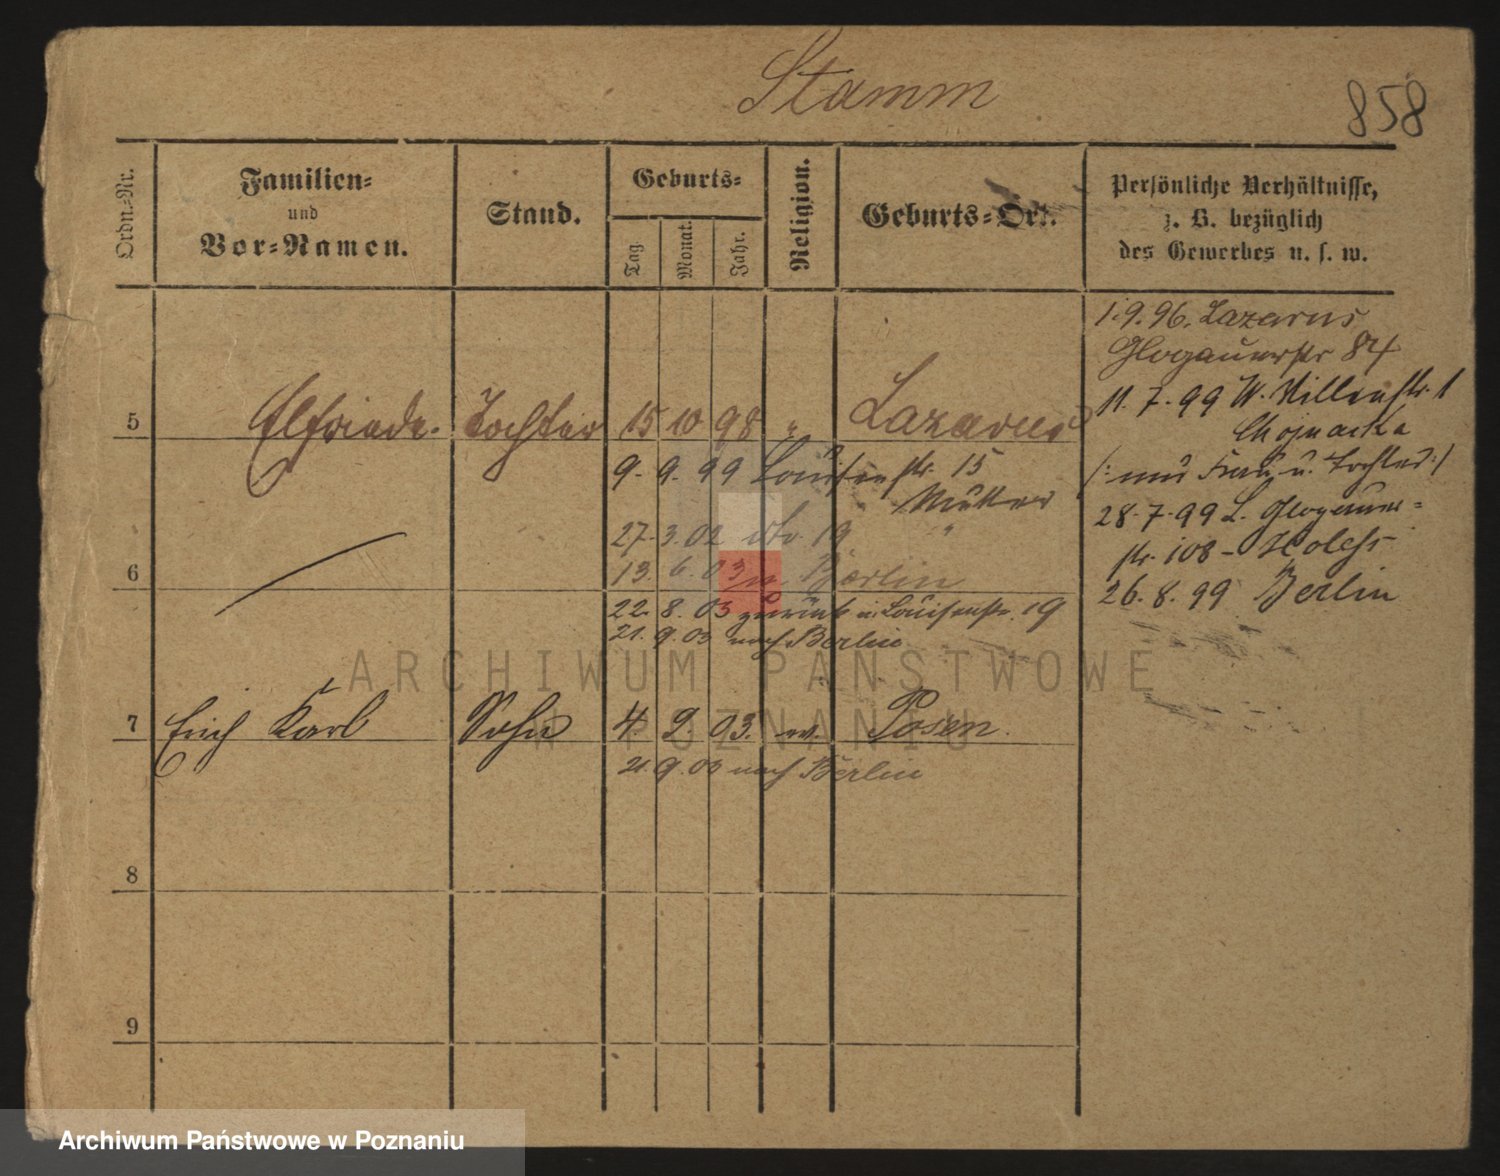 Stamm
858
Ordn.-Nr.
Familien-
und
Vor-Namen.
Stand.
Geburts-
Tag.
Monat.
Jahr.
Religion.
Geburts-Ort.
Persönliche Verhältnisse,
z. B. bezüglich
des Gewerbes u. s. w.
1.9.96. Lazarus
Glogauerstr 84
11. 7. 99 W. Villenstr. 1
Chojnacka
/: nur Frau u. Tochter :/
28. 7. 99 L. Glogauer=
str. 108 -
26. 8. 99 Berlin
5 Elfriede. Tochter 15 10 98 " Lazarus
9. 9. 99 Louisenstr. 15
Mutter
27. 3. 02 dto 19 "
6
13. 6. 03 n. Berlin
22. 8. 03 zurück n. Louisenstr. 19
21. 9. 03 nach Berlin
7 Erich Karl Sohn 4 2. 03. ev. Posen.
21. 9. 03 nach Berlin
8
9
ARCHIWUM PAŃSTWOWE
W POZNANIU
Archiwum Państwowe w Poznaniu